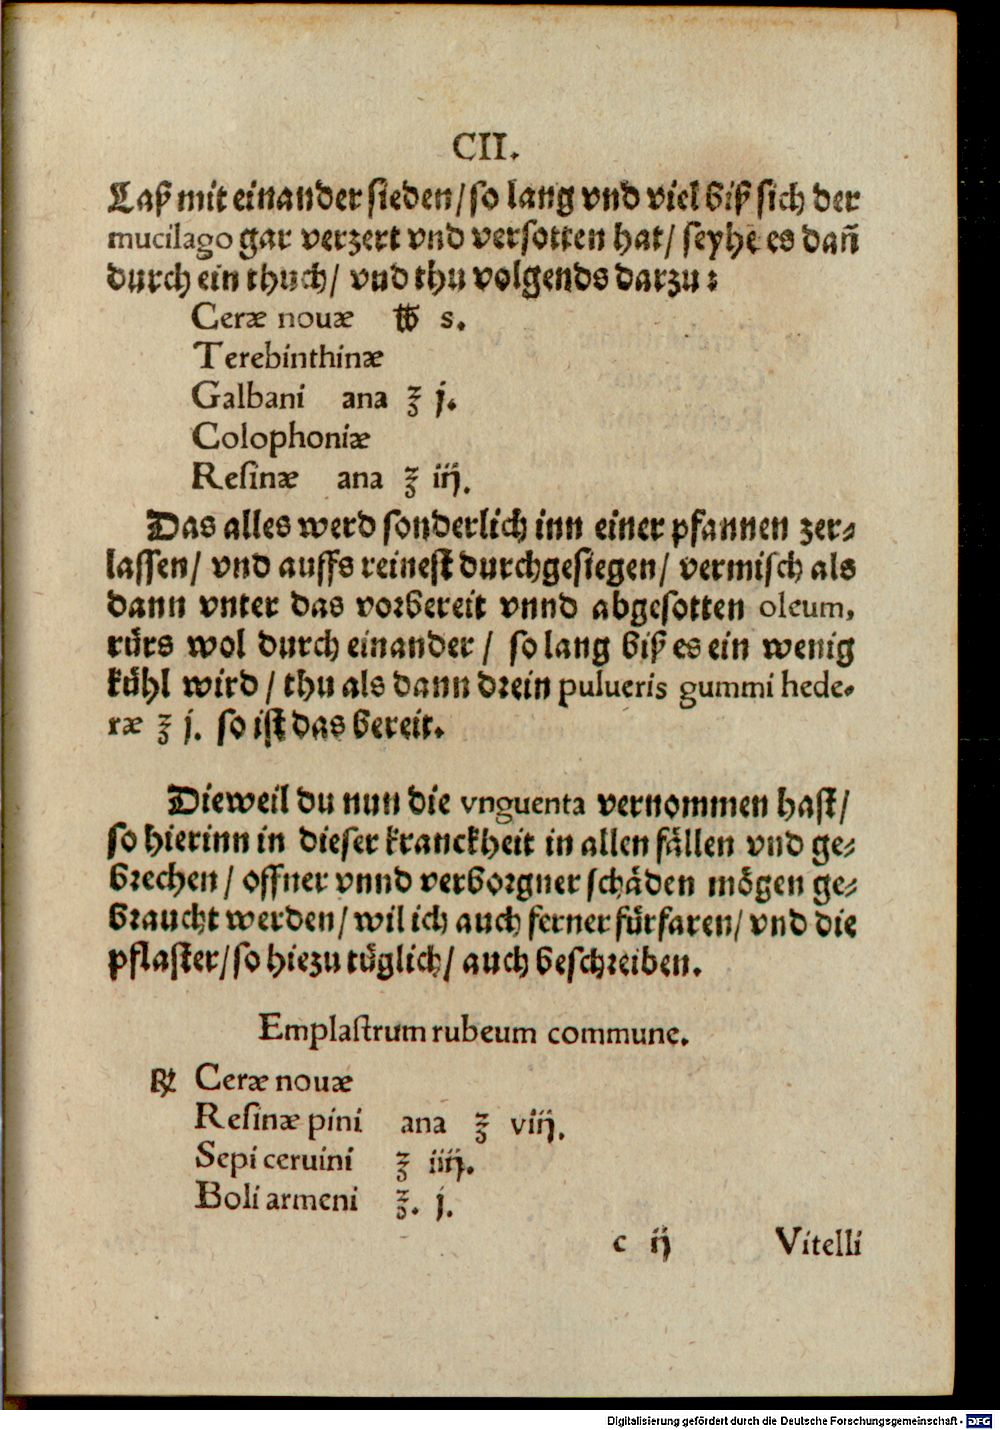 CII.
Laß mit einander sieden/ so lang vnd viel biß sich der
mucilago gar verzert vnd versotten hat/ seyhe es dañ
durch ein thuch/ vnd thu volgends darzu:
Ceræ nouæ ℔ s.
Terebinthinæ
Galbani ana ℥ j.
Colophoniæ
Resinæ ana ℥ iij.
Das alles werd sonderlich inn einer pfannen zer-
lassen/ vnd auffs reinest durchgesiegen/ vermisch als
dann vnter das vorbereit vnnd abgesotten oleum,
rürs wol durch einander/ so lang biß es ein wenig
kühl wird/ thu als dann drein pulueris gummi hede-
ræ ℥ j. so ist das bereit.
Dieweil du nun die vnguenta vernommen hast/
so hierinn in dieser kranckheit in allen fällen vnd ge-
brechen/ offner vnnd verborgner schäden mögen ge-
braucht werden/ wil ich auch ferner fürfaren/ vnd die
pflaster/ so hiezu tüglich/ auch beschreiben.
Emplastrum rubeum commune.
℞ Ceræ nouæ
Resinæ pini ana ℥ viij.
Sepi ceruini ℥ iiij.
Boli armeni ℥. j.
c ij Vitelli
Digitalisierung gefördert durch die Deutsche Forschungsgemeinschaft - DFG